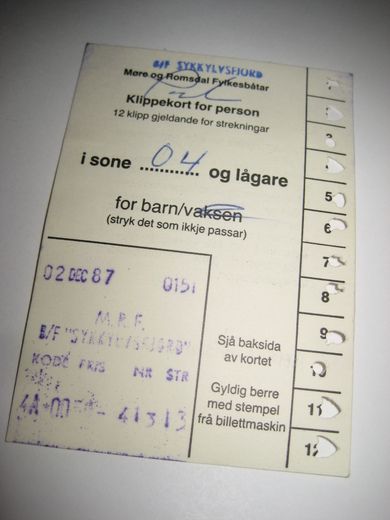 B/F SYKKYLVSFJORD
Møre og Romsdal Fylkesbåtar
Klippekort for person
12 klipp gjeldande for strekningar
i sone 04 og lågare
for barn/vaksen
(stryk det som ikkje passar)
02 DEC 87 0151
M.R.F.
B/F "SYKKYLVSFJORD"
KODE PRIS NR STR
4A 41313
Sjå baksida
av kortet
Gyldig berre
med stempel
frå billettmaskin
5
6
7
8
9
10
11
12